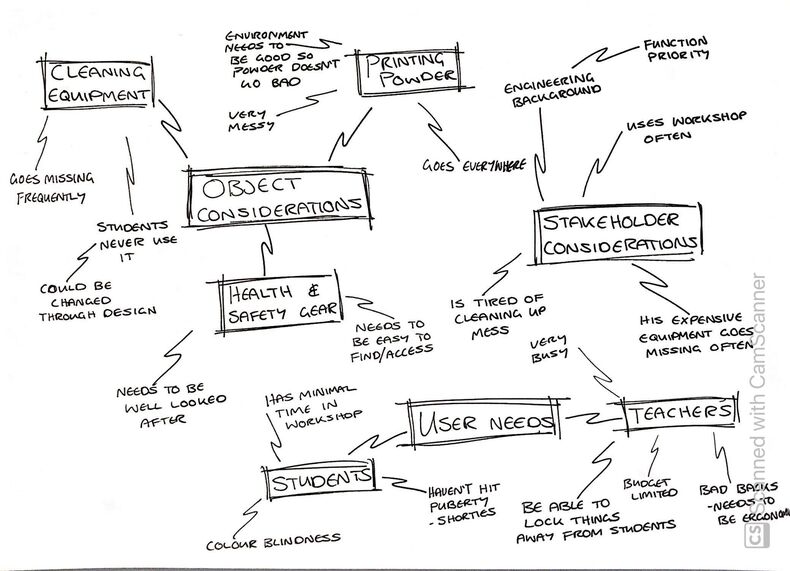 CLEANING
EQUIPMENT
GOES MISSING
FREQUENTLY
STUDENTS
NEVER USE
IT
COULD BE
CHANGED
THROUGH DESIGN
ENVIRONMENT
NEEDS TO
BE GOOD SO
POWDER DOESN'T
GO BAD
VERY
MESSY
PRINTING
POWDER
GOES EVERYWHERE
OBJECT
CONSIDERATIONS
HEALTH &
SAFETY GEAR
NEEDS TO
BE EASY TO
FIND/ACCESS
NEEDS TO BE
WELL LOOKED
AFTER
FUNCTION
PRIORITY
ENGINEERING
BACKGROUND
USES WORKSHOP
OFTEN
STAKEHOLDER
CONSIDERATIONS
IS TIRED OF
CLEANING UP
MESS
HIS EXPENSIVE
EQUIPMENT GOES
MISSING OFTEN
USER NEEDS
STUDENTS
HAS MINIMAL
TIME IN
WORKSHOP
HAVEN'T HIT
PUBERTY
- SHORTIES
COLOUR BLINDNESS
TEACHERS
VERY
BUSY
BE ABLE TO
LOCK THINGS
AWAY FROM STUDENTS
BUDGET
LIMITED
BAD BACKS
- NEEDS TO
BE ERGONOM
CS Scanned with CamScanner